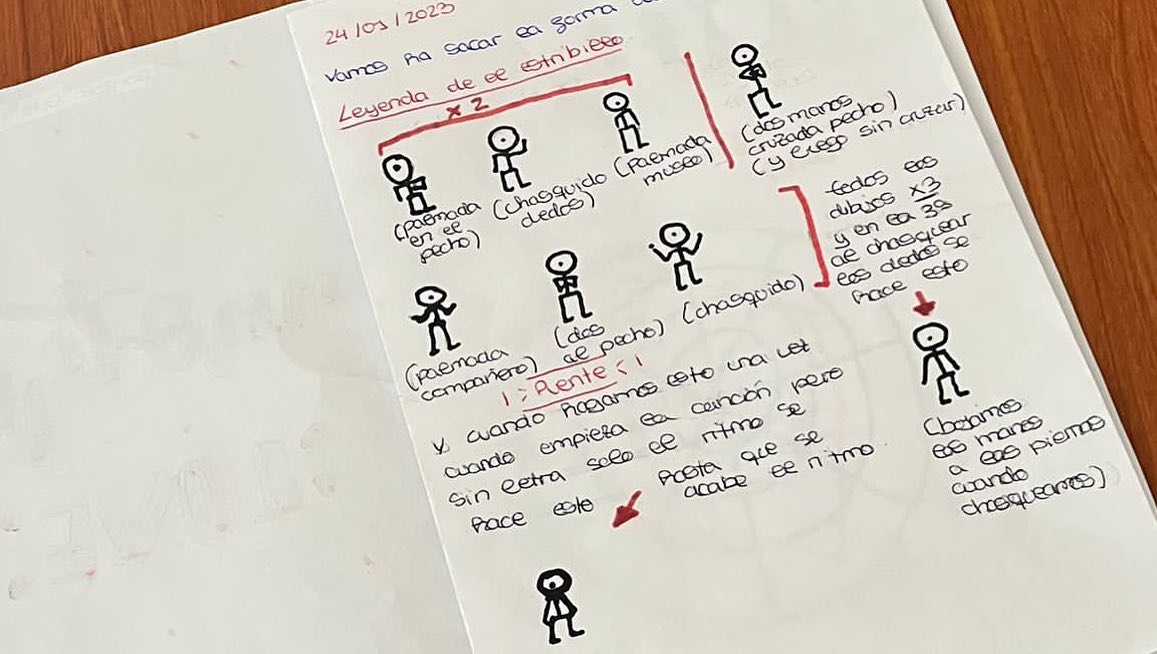 24/01/2023
Vamos ha sacar la forma
Leyenda de el estribillo
x2
(palmada
en el
pecho)
(chasquido
dedos)
(palmada
muslo)
(dos manos
cruzada pecho)
(y luego sin cruzar)
(palmada
compañero)
(dos
al pecho)
(chasquido)
todos los
dibujos x3
y en la 3ª
al chasquear
los dedos se
hace esto
(bajamos
las manos
a las piernas
cuando
chasqueamos)
y cuando hagamos esto una vez
cuando empieza la canción pero
sin letra solo el ritmo se
hace esto hasta que se
acabe el ritmo.